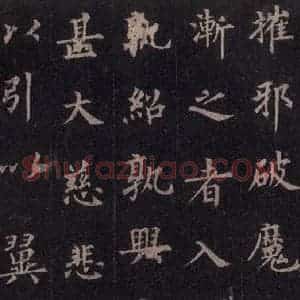 摧邪破魔
漸之者入
孰紹孰興
甚大慈悲
以引以翼